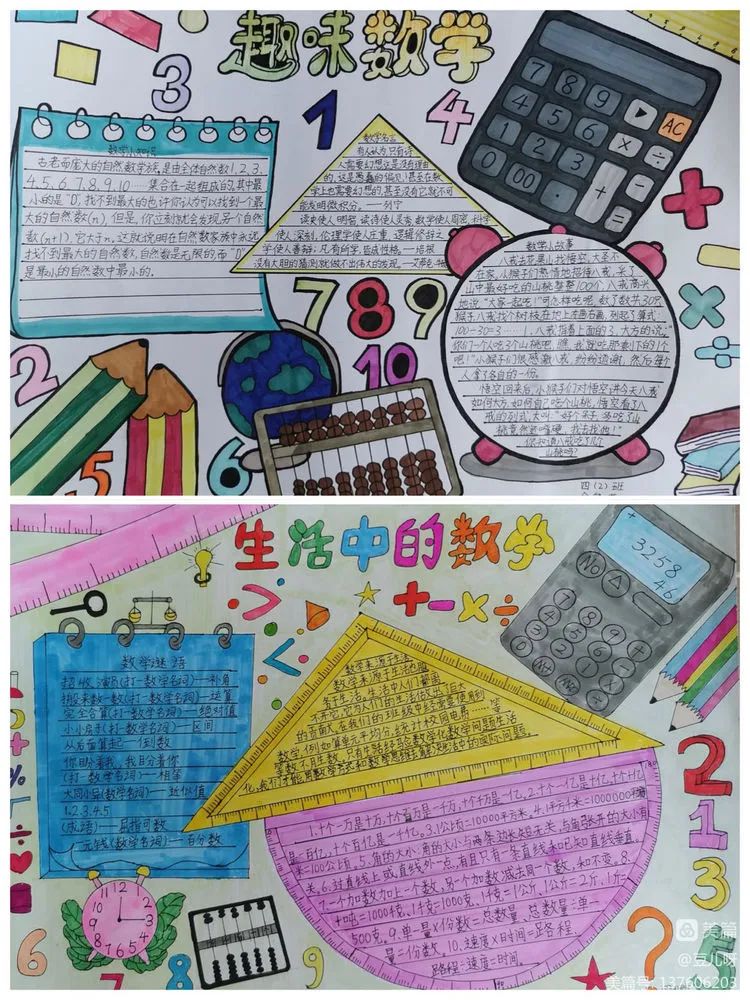 趣味数学
3
1
4
7 8 9
AC
4 5 6 × ÷
1 2 3
0 00 . + =
数学小知识
古老而庞大的自然数学族,是由全体自然数1.2.3.
4.5.6.7.8.9.10......集合在一起组成的,其中最
小的是"0",找不到最大的也许你认为可以找到一个最
大的自然数(n),但是,你立刻就会发现另一个自然
数(n+1),它大于n。这就说明在自然数家族中永远
找不到最大的自然数,自然数是无限的,而"0"
是最小的自然数中最小的。
数学名言
有人认为只有诗
人需要幻想这是没有理由
的,这是愚蠢的偏见!甚至在数
学上也需要幻想的,甚至没有它就不可
能发明微积分。——列宁
读史使人明智,读诗使人灵秀,数学使人周密,科学
使人深刻,伦理学使人庄重,逻辑修辞之
学使人善辩;凡有所学,皆成性格。——培根
没有大胆的猜测就做不出伟大的发现。——艾萨克·牛顿
数学小故事
八戒去花果山找悟空,大圣不
在家,小猴子们热情地招待八戒,采了
山中最好吃的山桃整整100个,八戒高兴
地说:"大家一起吃!"可怎样吃呢,数了数共30只
猴子,八戒找个树枝在地上左画右画,列起了算式,
100-30=3......1,八戒指着上面的3,大方的说:"
你们一个人吃3个山桃吧,瞧,我就吃那剩下的1个
吧!"小猴子们很感激八戒,纷纷道谢,然后每个
人拿了各自的一份。
悟空回来后,小猴子们对悟空讲今天八戒
如何大方,如何自己吃1个山桃,悟空看了八
戒的列式,大叫:"好个呆子,多吃了山
桃竟然还嘴硬,我去找他!"
你知道八戒吃了几个
山桃吗?
7 8 9
10
2
5
6
四(2)班
生活中的数学
+-×÷
3258
46
No
数学谜语
超级演员(打一数学名词)—补角
搬来数一数(打一数学名词)—运算
完全合算(打一数学名词)—绝对值
小小房子(打一数学名词)—区间
从后面算起—倒数
你盼着我,我盼着你
(打一数学名词)—相等
大同小异(数学名词)—近似值
1.2.3.4.5
(成语)—屈指可数
1元钱(数学名词)—百分数
数学来源于生活
1.十个一万是十万,十个百万是一千万,十个千万是一亿。2.十个一亿是十亿,十个十亿
是一百亿,十个百亿是一千亿。3.1公顷=10000平方米。4.1平方千米=1000000平方
米=100公顷。5.角的大小:角的大小与两条边长短无关,与角张开的大小有
关。6.过直线上或直线外一点,有且只有一条直线和已知直线垂直。
7.一个加数加上一个数,另一个加数减去同一个数,和不变。8.
1吨=1000千克,1千克=1000克,1千克=1公斤,1公斤=2斤,1斤=
500克。9.单一量×份数=总数量,总数量÷单一
量=份数。10.速度×时间=路程,
路程÷速度=时间。
2
1
3
5
6
7
8
9
?
%
美篇
@豆儿呀
美篇号: 137606203